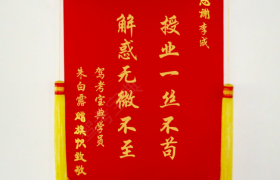 感谢李成
授业一丝不苟
解惑无微不至
驾考宝典学员
朱白露 赠旗帜致敬